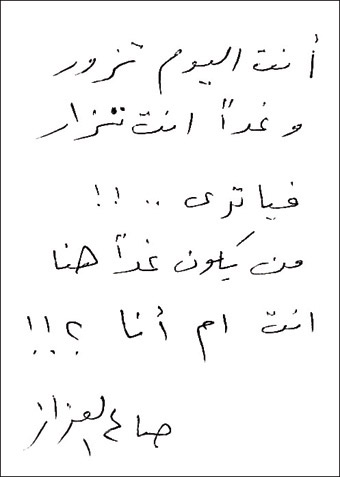 أنت اليوم تزور
وغداً انت تزار
فيا ترى .. !!
من يكون غداً هنا
انت ام أنا ؟!!
صالح العزاز